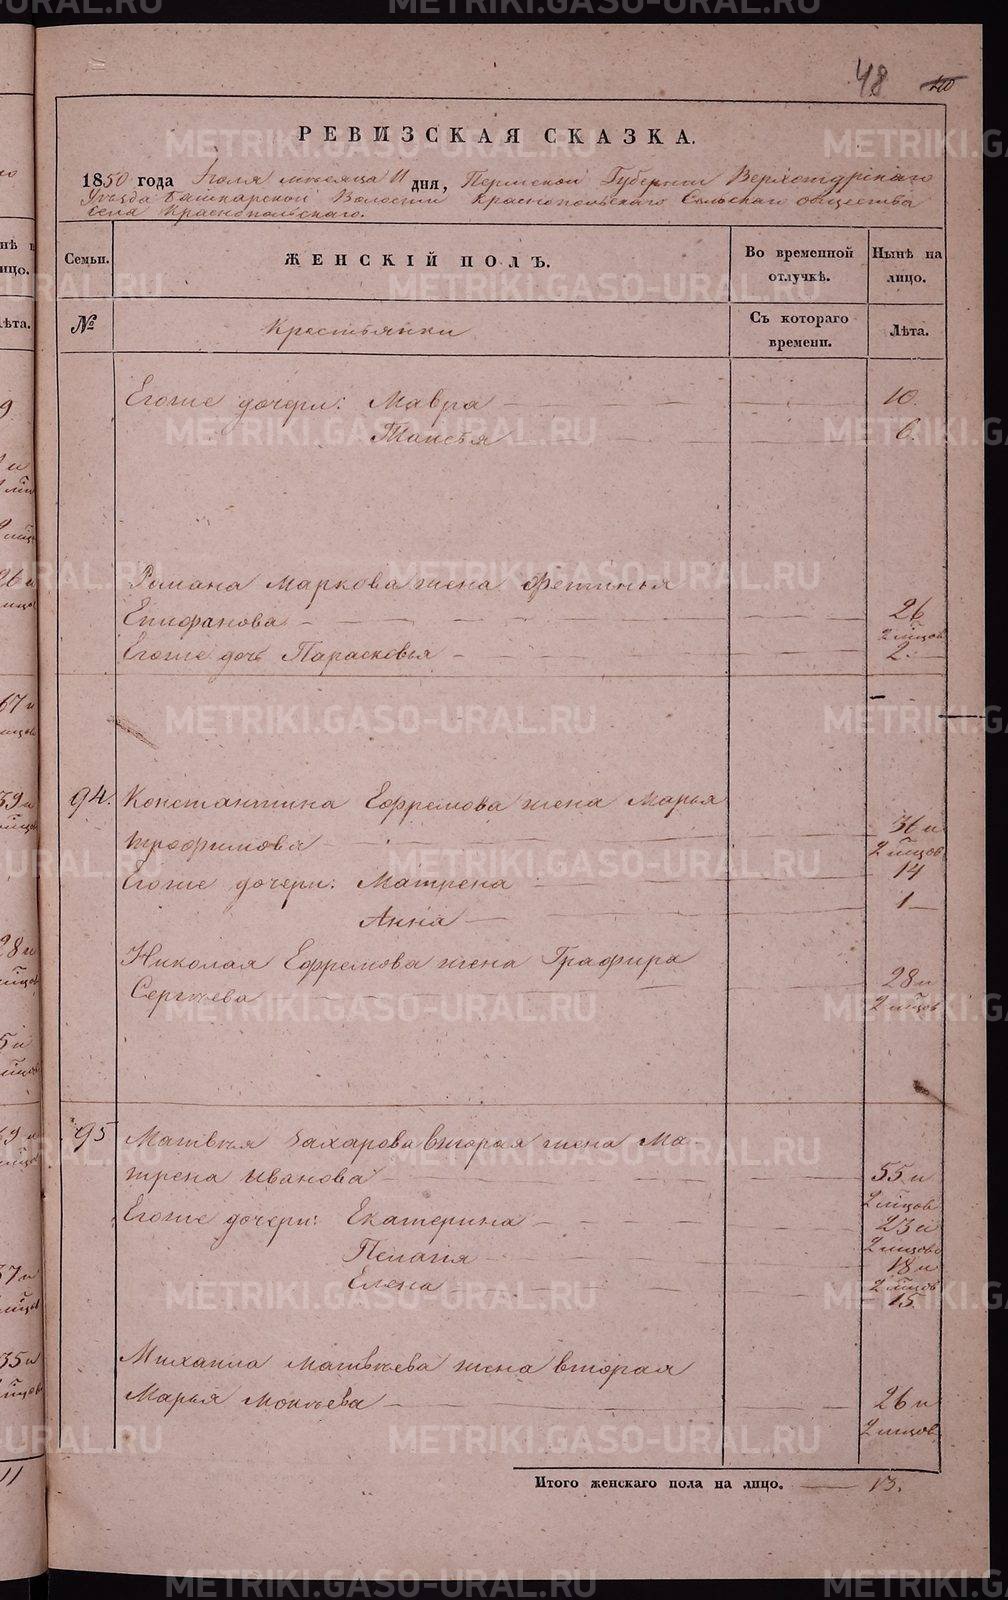 METRIKI.GASO-URAL.RU
48
РЕВИЗСКАЯ СКАЗКА.
1850 года Іюля мѣсяца 11 дня, Пермской Губерніи Верхотурскаго
Уѣзда Башкарской Волости Краснопольскаго Сельскаго общества
Села Краснопольскаго.
Семьи. ЖЕНСКІЙ ПОЛЪ. Во временной отлучкѣ. Нынѣ на лицо.
№ Крестьянки Съ котораго времени. Лѣта.
Егоже дочери: Мавра 10.
Таисья 6.
Романа Маркова жена Фетинья
Епифанова 26
Егоже дочь Парасковья 2.
94. Константина Ефремова жена Марья
Трофимова 36 и
Егоже дочери: Матрена 14
Анна 1
Николая Ефремова жена Графира
Сергѣева 28 и
95 Матвѣя Захарова вторая жена Ма
трена Иванова 55 и
Егоже дочери: Екатерина 23 и
Пелагія 18 и
Елена 15.
Михаила Матвѣева жена вторая
Марья Мокѣева 26 и
Итого женскаго пола на лицо. 13.